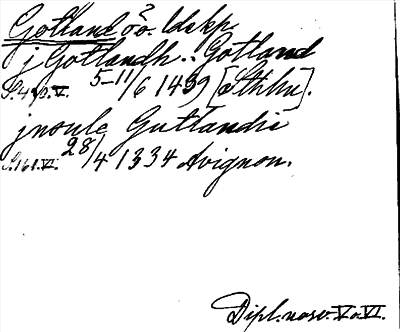 Gotland ö o. ldskp.
j Gotlandh.: Gotland
S. 490. V. 5-11/6 1499 [å Sthlm].
jnsule Gutlandie
S. 161. VI. 28/4 1334 Avignon.
Dipl. norv. V o. VI.